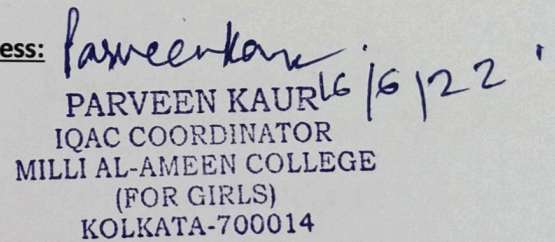 ess: Parveen Kaur
16/6/22
PARVEEN KAUR
IQAC COORDINATOR
MILLI AL-AMEEN COLLEGE
(FOR GIRLS)
KOLKATA-700014